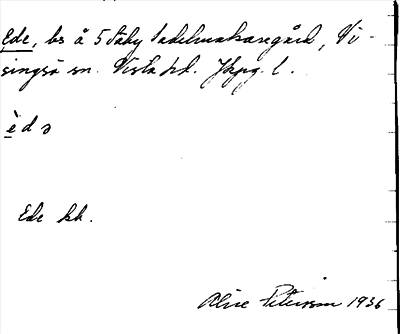 Ede, bs å 5 Säby Sadelmakaregård, Vi-
singsö sn. Vista hd. Jkpg. l.
èdə
Ede bb.
Alice Petersson 1936